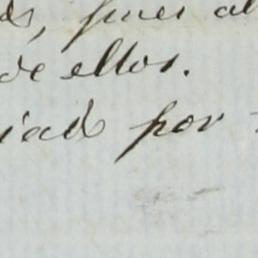 pues al
de ellos.
iado por